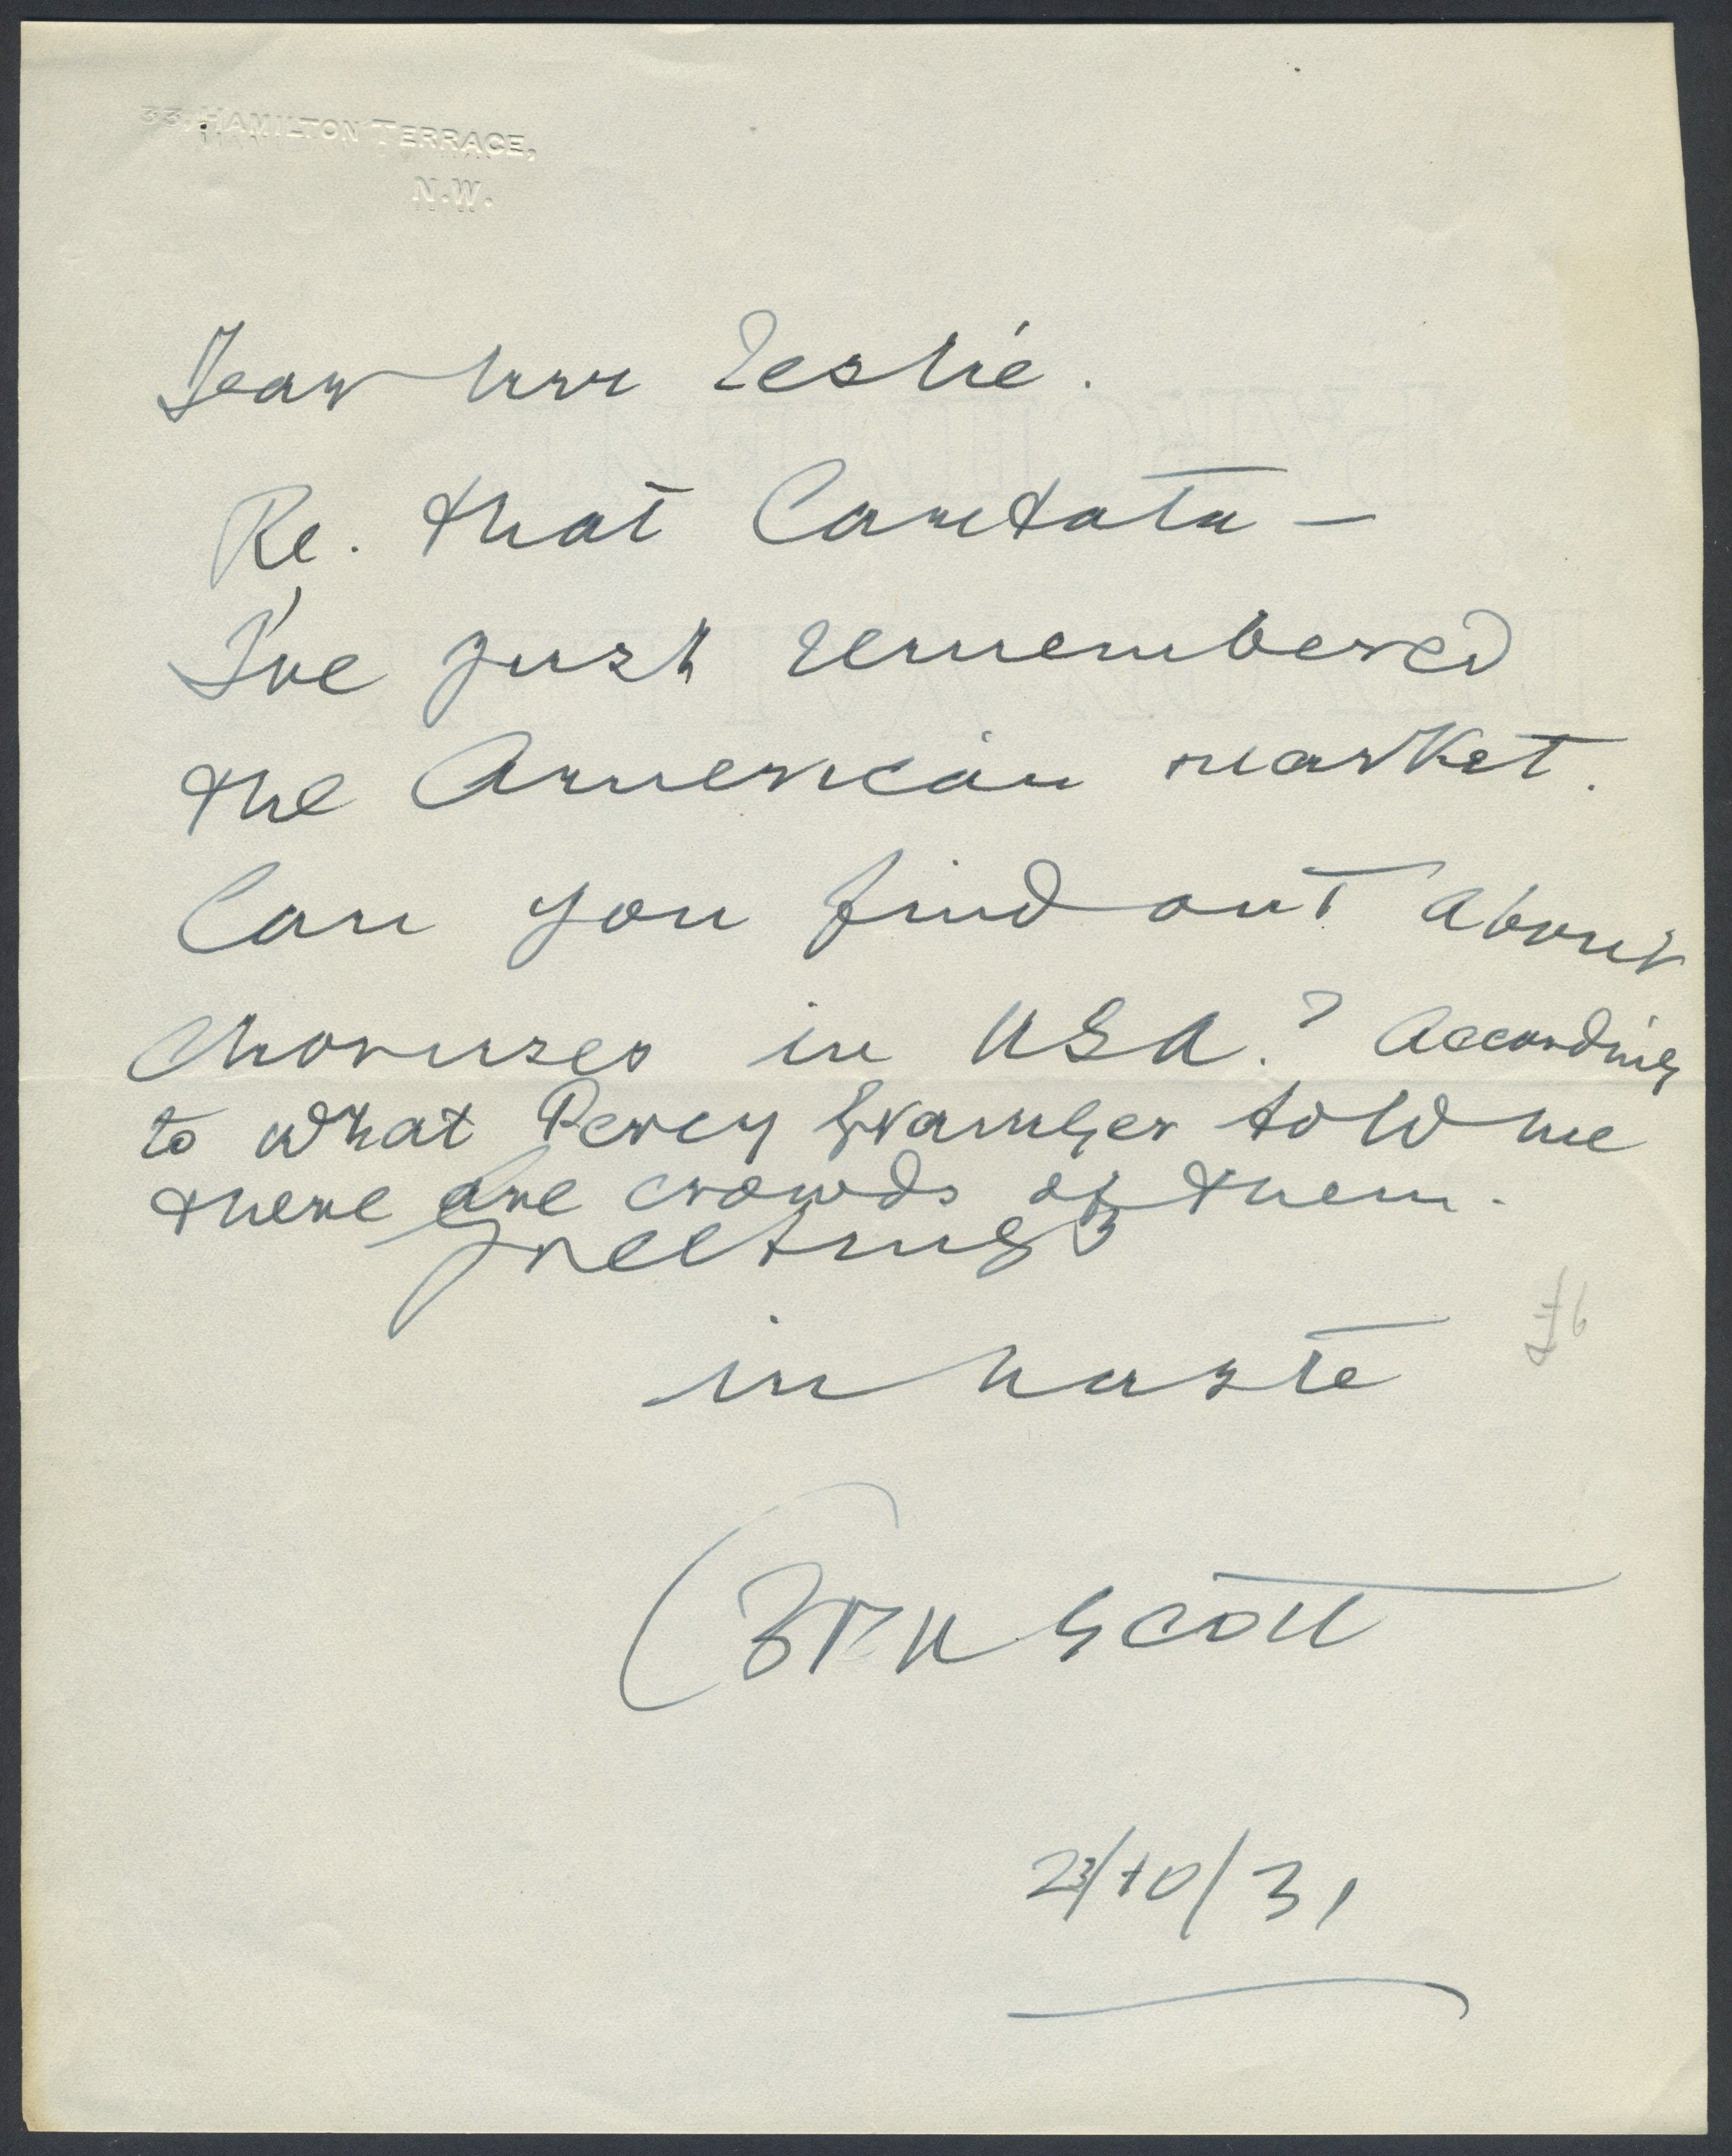 33, HAMILTON TERRACE,
N.W.
Dear Mr Leslie.
Re. that Cantata —
I've just remembered
the American market.
Can you find out about
choruses in USA.? According
to what Percy Grainger told me
there are crowds of them.
Greetings
in haste
Cyril Scott
£6
23/10/31